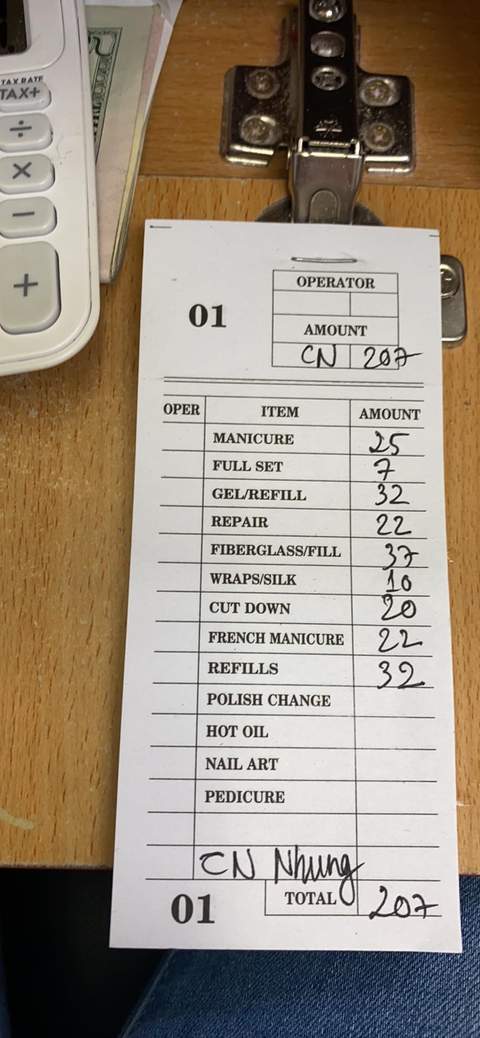 TAX RATE
TAX+
÷
×
−
+
OPERATOR
01
AMOUNT
CN 207
OPER ITEM AMOUNT
MANICURE 25
FULL SET 7
GEL/REFILL 32
REPAIR 22
FIBERGLASS/FILL 37
WRAPS/SILK 10
CUT DOWN 20
FRENCH MANICURE 22
REFILLS 32
POLISH CHANGE
HOT OIL
NAIL ART
PEDICURE
CN Nhung
01 TOTAL 207